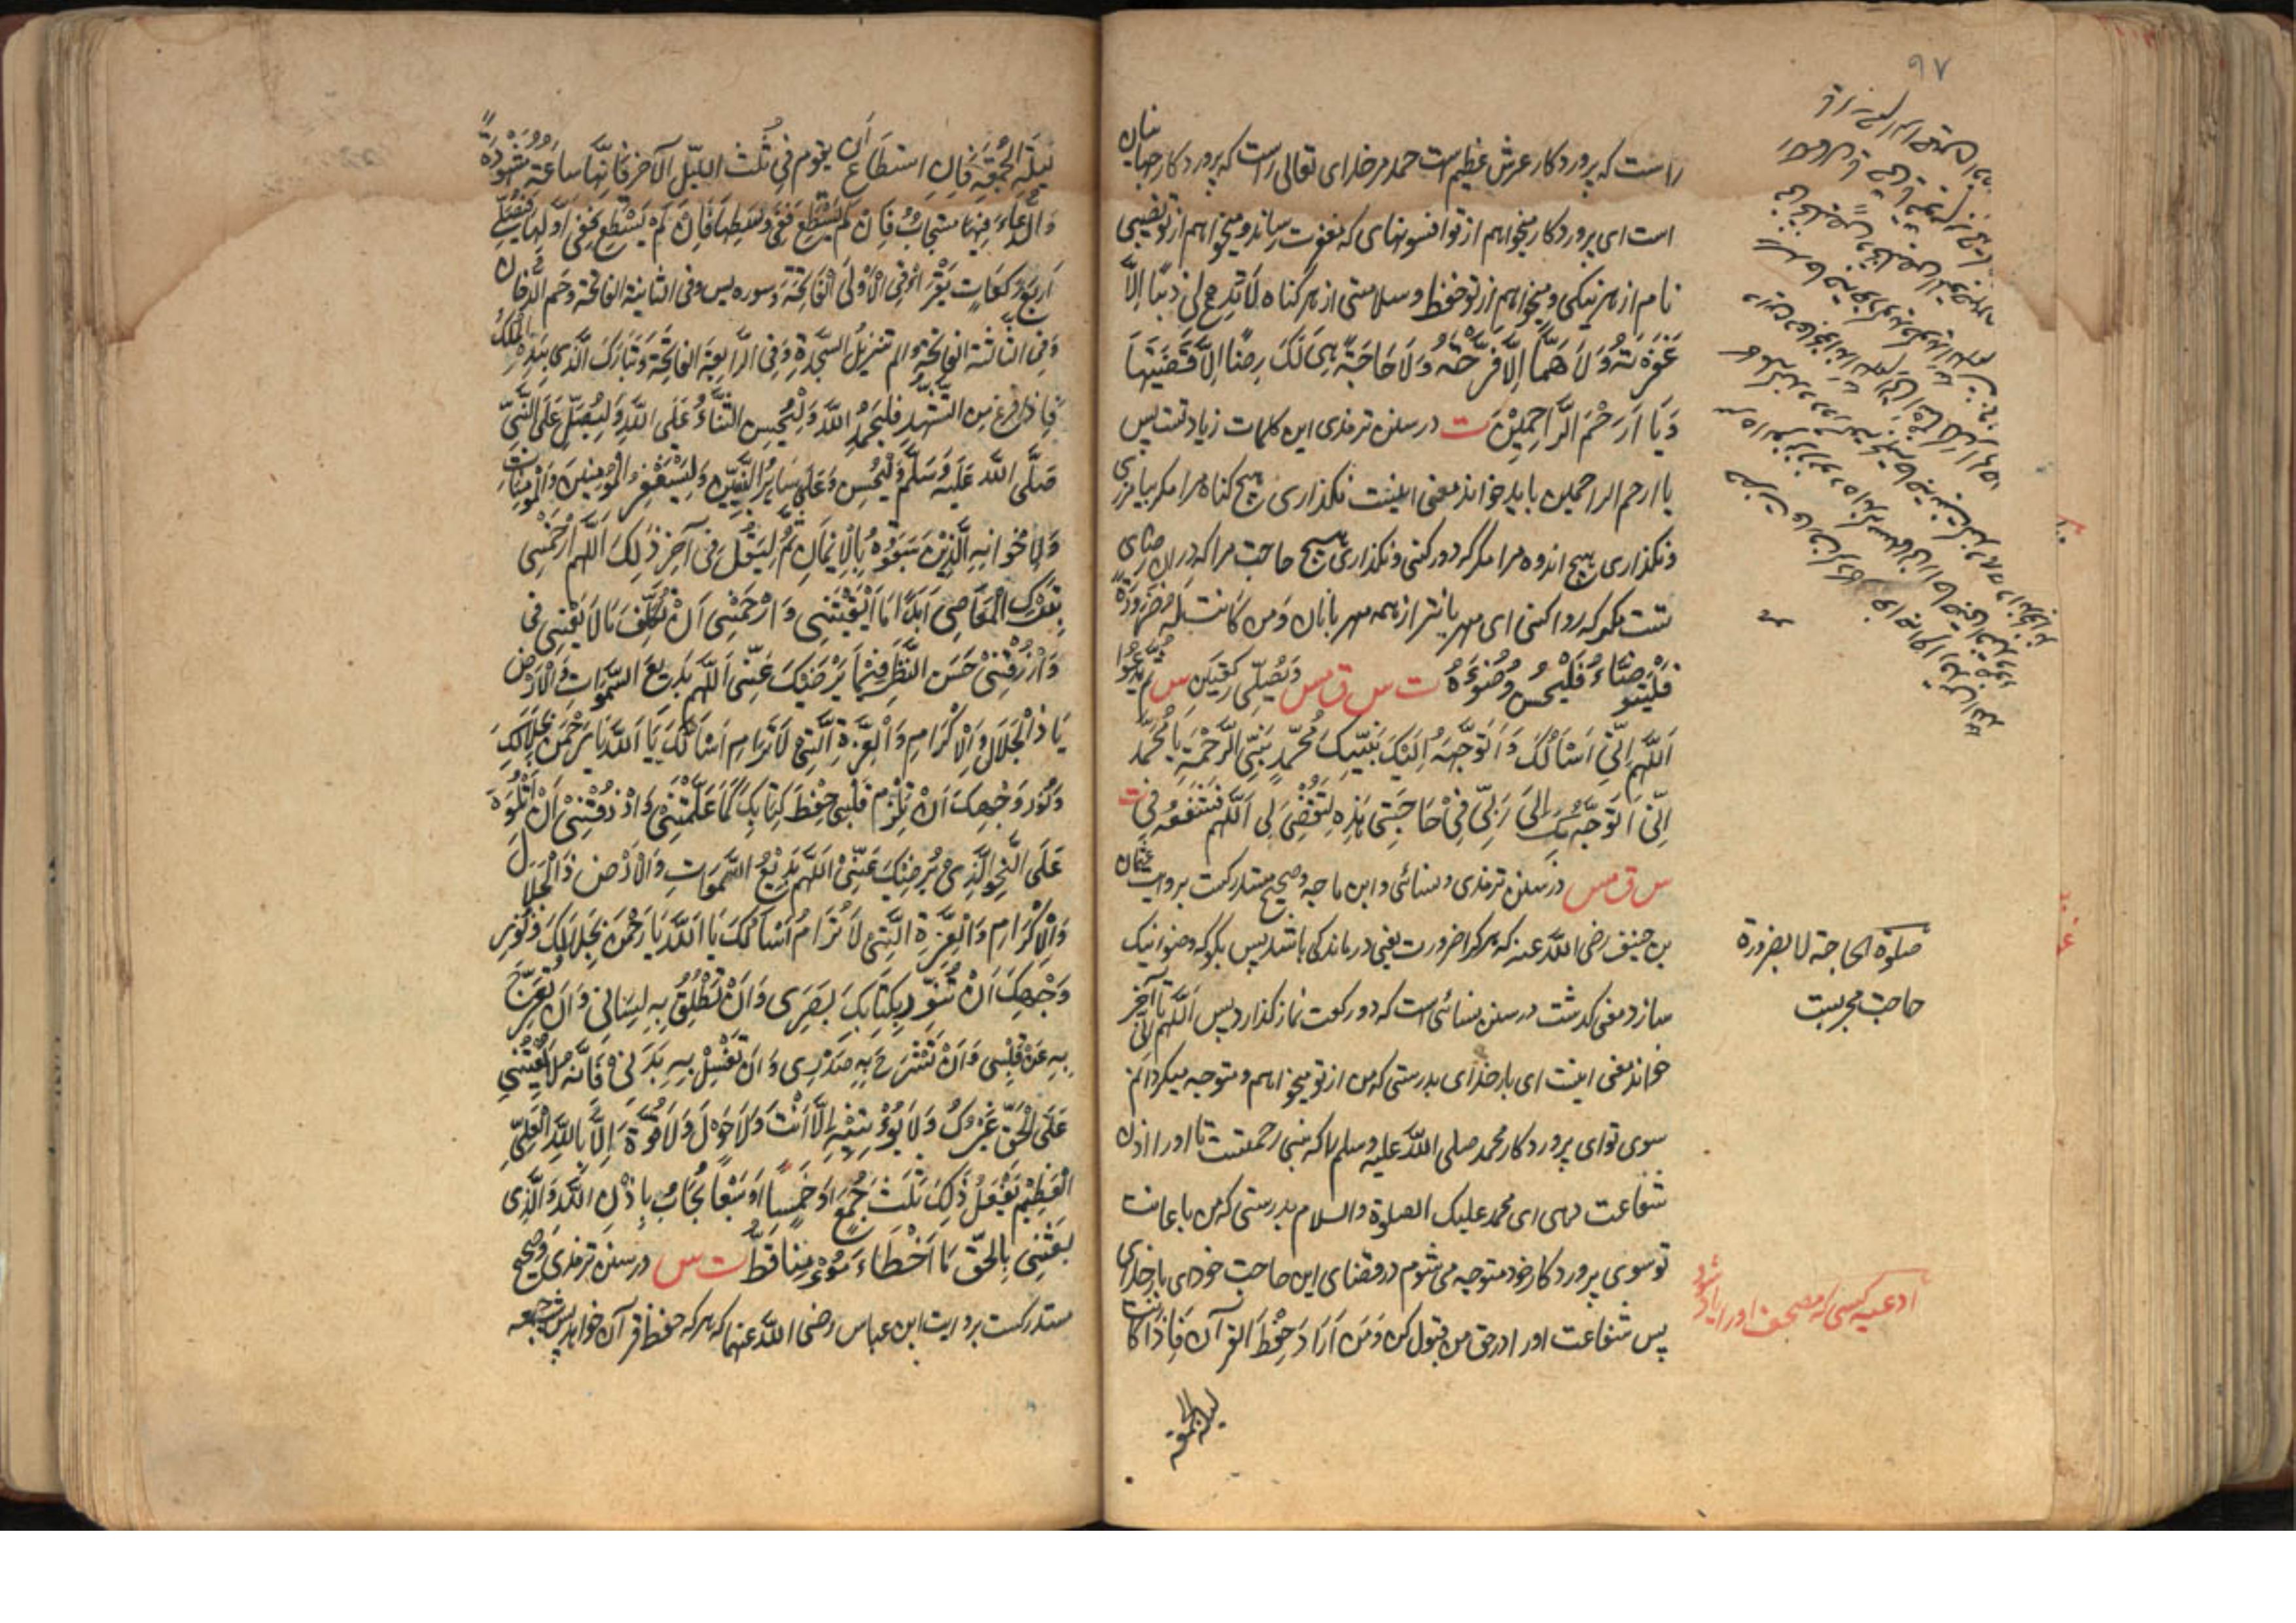 ۹۷
راست که پروردکار عرش عظیم است حمد مر خدای تعالی راست که پروردکار جهانیان
است ای پروردکار میخواهم از تو افسونهای که مغفرت رساند و میخواهم از تو نصیبی
تام از هر نیکی و میخواهم از تو حفظ و سلامتی از هر کناه لَا تَدَعْ لِی ذَنْبًا اِلَّا
غَفَرْتَهُ وَلَا هَمًّا اِلَّا فَرَّجْتَهُ وَلَا حَاجَةً هِیَ لَکَ رِضًا اِلَّا قَضَیْتَهَا
یَا اَرْحَمَ الرَّاحِمِیْنَ ت در سنن ترمذی این کلمات زیادتست پس
یا ارحم الراحمین باید خواند معنی اینست نکذاری هیچ کناه مرا مکر بیامرزی
و نکذاری هیچ اندوه مرا مکر که دور کنی و نکذاری هیچ حاجت مرا که در ان رضای
تست مکر که روا کنی ای مهربانتر از همه مهربانان وَمن کَانت له ضَرُوْرَةٌ
فَلْیَتَوَضَّاءْ فَلْیُحْسِنْ وُضُوْءَهُ ت س ق مس وَیُصَلِّی رَکْعَتَیْنِ س ثُمَّ یَدْعُوْا
اَللّٰهُمَّ اِنِّیْ اَسْاَلُکَ وَاَتَوَجَّهُ اِلَیْکَ بِنَبِیِّکَ مُحَمَّدٍ نَبِیِّ الرَّحْمَةِ یَا مُحَمَّدُ
اِنِّیْ اَتَوَجَّهُ بِکَ اِلَی رَبِّیْ فِیْ حَاجَتِیْ هَذِهِ لِتُقْضَی لِی اَللّٰهُمَّ فَشَفِّعْهُ فِیَّ ت
س ق مس در سنن ترمذی و نسائی و ابن ماجه و صحیح مستدرکست بروایت عثمان
بن حنیف رضی الله عنه که هر کرا ضرورت یعنی درماندکی باشد پس بکو که وضو نیک
سازد معنی کذشت در سنن نسائی است که دو رکعت نماز کذارد پس اللهم انی تا آخر
خواند معنی اینست ای بارخدای بدرستی که من از تو میخواهم و متوجه میکردانم
سوی تو ای پروردکار محمد صلی الله علیه وسلم را که نبی رحمتست تا او را اذن
شفاعت دهی ای محمد علیک الصلوة والسلام بدرستی که من باعانت
تو سوی پروردکار خود متوجه می شوم در قضای این حاجت خود ای بارخدای
پس شفاعت او را در حق من قبول کن وَمَن اَرَادَ حِفْظَ القرآن فَاِذَا کَانَتْ
لیلة الجمعة
صلوة الحاجة لا بضرورة
حاجت مجربست
ادعیه کسی که مصحف او را یاد شود
لَیْلَةُ الْجُمُعَةِ فَاِنِ اسْتَطَاعَ اَن یقوم فِیْ ثُلُثِ اللَّیْلِ الْآخِرِ فَاِنَّهَا سَاعَةٌ مَشْهُوْدَةٌ
وَالدُّعَاءُ فِیْهَا مُسْتَجَابٌ فَاِنْ لَمْ یَسْتَطِعْ فَفِیْ وَسَطِهَا فَاِنْ لَمْ یَسْتَطِعْ فَفِیْ اَوَّلِهَا فَیُصَلِّیْ
اَرْبَعَ رَکَعَاتٍ یَقْرَاُ فِی الْاُوْلَی الْفَاتِحَةَ وَسوره یس وفی الثانیة الفاتحة وَحم الدُّخَان
وَفِی الثَّالِثَة الفَاتِحَة والم تَنْزِیْلُ السَّجْدَة وَفِی الرَّابِعَة الفَاتِحَة وَتَبَارَکَ الَّذِی بِیَدِهِ الْمُلْکُ
فَاِذَا فَرَغَ مِنَ التَّشَهُّدِ فَلْیَحْمَدِ اللّٰهَ وَلْیُحْسِنِ الثَّنَاءَ عَلَی اللّٰهِ وَلْیُصَلِّ عَلَی النَّبِیِّ
صَلَّی اللّٰهُ عَلَیْهِ وَسَلَّمَ وَلْیُحْسِنْ وَعَلَی سَایِرِ النَّبِیِّیْنَ وَلْیَسْتَغْفِرْ لِلْمُؤْمِنِیْنَ وَالْمُؤْمِنَاتِ
وَلِاِخْوَانِهِ الَّذِیْنَ سَبَقُوْهُ بِالْاِیْمَانِ ثُمَّ لِیَقُلْ فِی آخِرِ ذٰلِکَ اَللّٰهُمَّ ارْحَمْنِیْ
بِتَرْکِ الْمَعَاصِیْ اَبَدًا مَا اَبْقَیْتَنِیْ وَارْحَمْنِیْ اَنْ اَتَکَلَّفَ مَا لَا یَعْنِیْنِی
وَارْزُقْنِیْ حُسْنَ النَّظَرِ فِیْمَا یُرْضِیْکَ عَنِّیْ اَللّٰهُمَّ بَدِیْعَ السَّمٰوَاتِ وَالْاَرْضِ
یَا ذَا الْجَلَالِ وَالْاِکْرَامِ وَالْعِزَّةِ الَّتِیْ لَا تُرَامُ اَسْاَلُکَ یَا اَللّٰهُ یَا رَحْمٰنُ بِجَلَالِکَ
وَنُوْرِ وَجْهِکَ اَنْ تُلْزِمَ قَلْبِیْ حِفْظَ کِتَابِکَ کَمَا عَلَّمْتَنِیْ وَارْزُقْنِیْ اَنْ اَتْلُوَهُ
عَلَی النَّحْوِ الَّذِیْ یُرْضِیْکَ عَنِّیْ اَللّٰهُمَّ بَدِیْعَ السَّمٰوَاتِ وَالْاَرْضِ ذَا الْجَلَالِ
وَالْاِکْرَامِ وَالْعِزَّةِ الَّتِیْ لَا تُرَامُ اَسْاَلُکَ یَا اَللّٰهُ یَا رَحْمٰنُ بِجَلَالِکَ وَنُوْرِ
وَجْهِکَ اَنْ تُنَوِّرَ بِکِتَابِکَ بَصَرِی وَاَنْ تُطْلِقَ بِهِ لِسَانِیْ وَاَنْ تُفَرِّجَ
بِهِ عَنْ قَلْبِیْ وَاَنْ تَشْرَحَ بِهِ صَدْرِی وَاَنْ تَغْسِلَ بِهِ بَدَنِیْ فَاِنَّهُ لَا یُعِیْنُنِیْ
عَلَی الْحَقِّ غَیْرُکَ وَلَا یُؤْتِیْهِ اِلَّا اَنْتَ وَلَا حَوْلَ وَلَا قُوَّةَ اِلَّا بِاللّٰهِ الْعَلِیِّ
الْعَظِیْمِ یَفْعَلُ ذٰلِکَ ثَلٰثَ جُمَعٍ اَوْ خَمْسًا اَوْ سَبْعًا یُجَابُ بِاِذْنِ اللّٰهِ وَالَّذِی
بَعَثَنِیْ بِالْحَقِّ مَا اَخْطَاءَ مُؤْمِنًا قَطُّ ت س در سنن ترمذی وصحیح
مستدرکست بروایت ابن عباس رضی الله عنهما که هر که حفظ قرآن خواهد پس شب جمعه